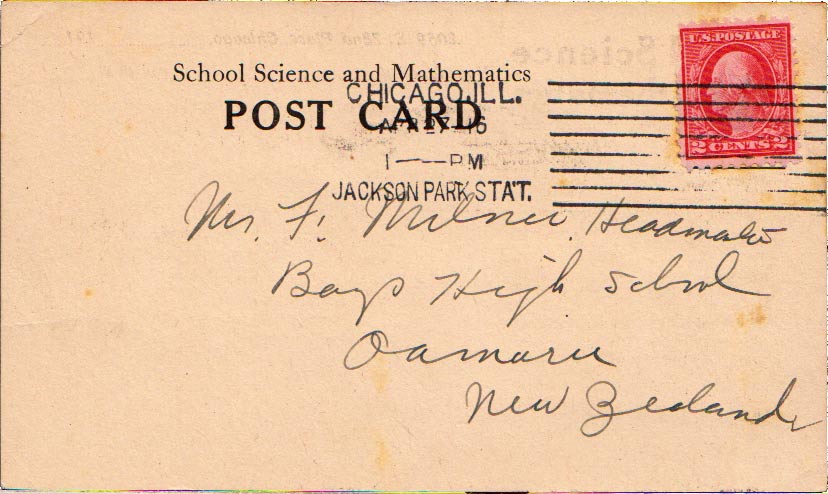 School Science and Mathematics
POST CARD
CHICAGO, ILL.
1 — PM
JACKSON PARK STA'T.
U.S. POSTAGE
2 CENTS 2
Mr. F. Milner, Headmaster
Boys High School
Oamaru
New Zealand